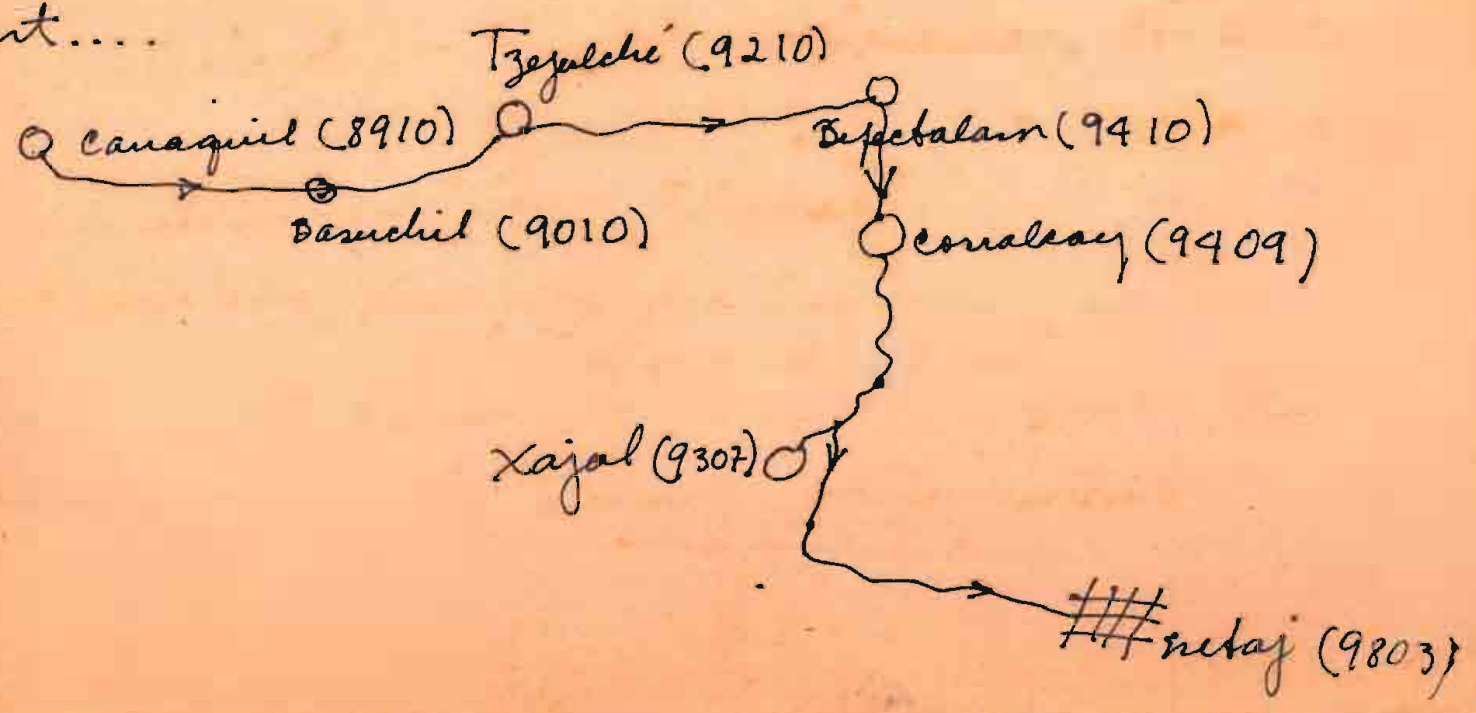 nt....
Tzejulché (9210)
Canaquil (8910)
Bijectalam (9410)
Basuchil (9010)
Corralcay (9409)
Xajal (9307)
netaj (9803)